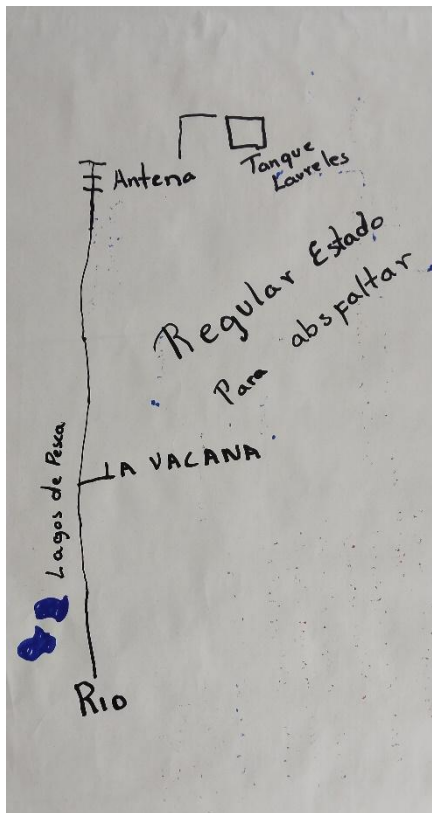 Antena
Tanque
Laureles
Regular Estado
Para absfaltar
LA VACANA
Lagos de Pesca
RIO